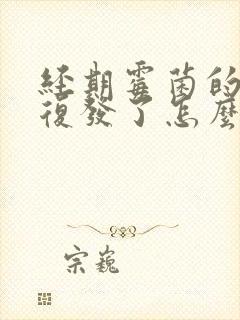 經期霉菌的
復發了怎麼
宗巍